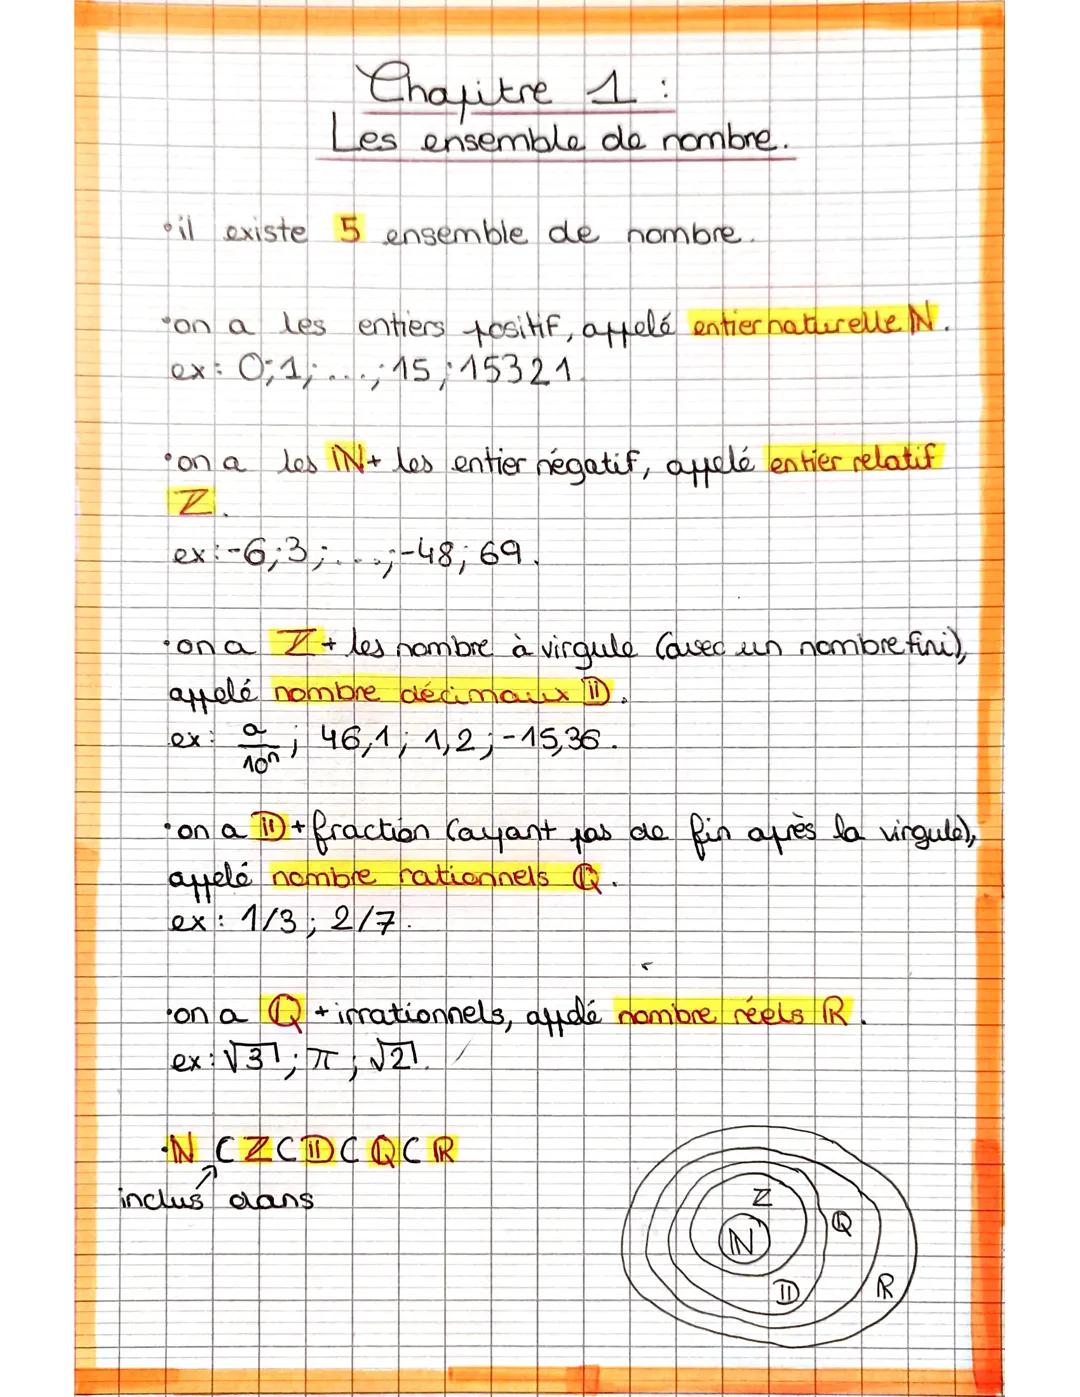 Chapitre 1 :
Les ensemble de nombre.
•il existe 5 ensemble de nombre.
•on a les entiers positif, appelé entier naturelle ℕ.
ex : 0;1;...;15;15321.
•on a les ℕ+ les entier négatif, appelé entier relatif
ℤ.
ex:-6;3;...;-48;69.
•on a ℤ+ les nombre à virgule (avec un nombre fini),
appelé nombre décimaux 𝔻.
ex: a/10ⁿ; 46,1; 1,2;-15,36.
•on a 𝔻+fraction (ayant pas de fin après la virgule),
appelé nombre rationnels ℚ.
ex: 1/3; 2/7.
•on a ℚ +irrationnels, appelé nombre réels ℝ.
ex: √3; π; √2.
•ℕ ⊂ ℤ ⊂ 𝔻 ⊂ ℚ ⊂ ℝ
inclus dans
ℤ
ℚ
ℕ
𝔻
ℝ